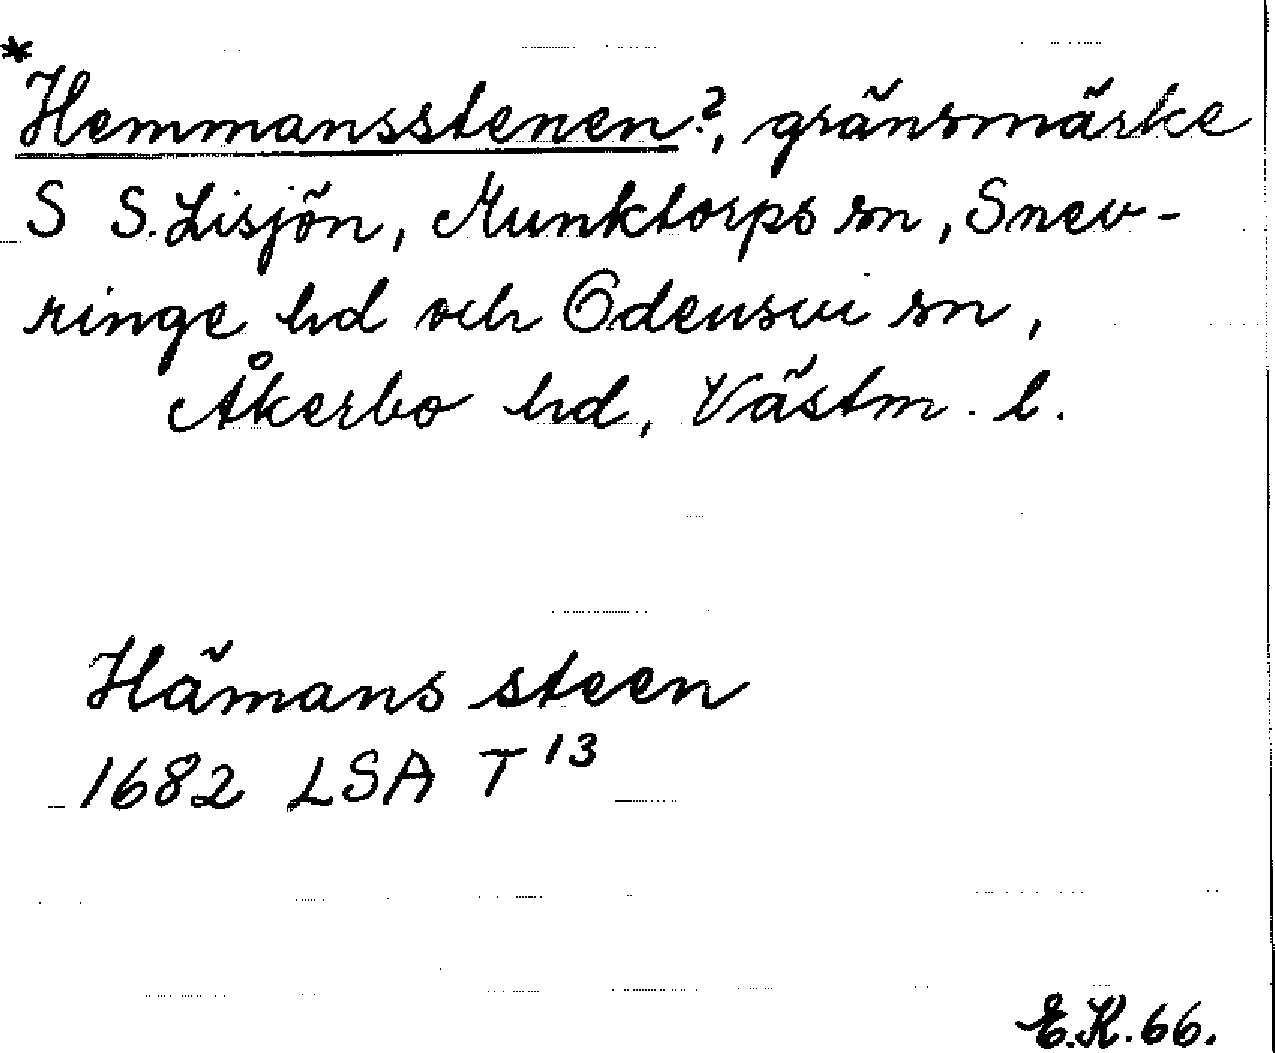 *Hemmansstenen?, gränsmärke
S S. Lisjön, Munktorps sn, Snev-
ringe hd och Odensvi sn,
Åkerbo hd, Västm. l.
Hämans steen
1682 LSA T 13
E.K. 66.